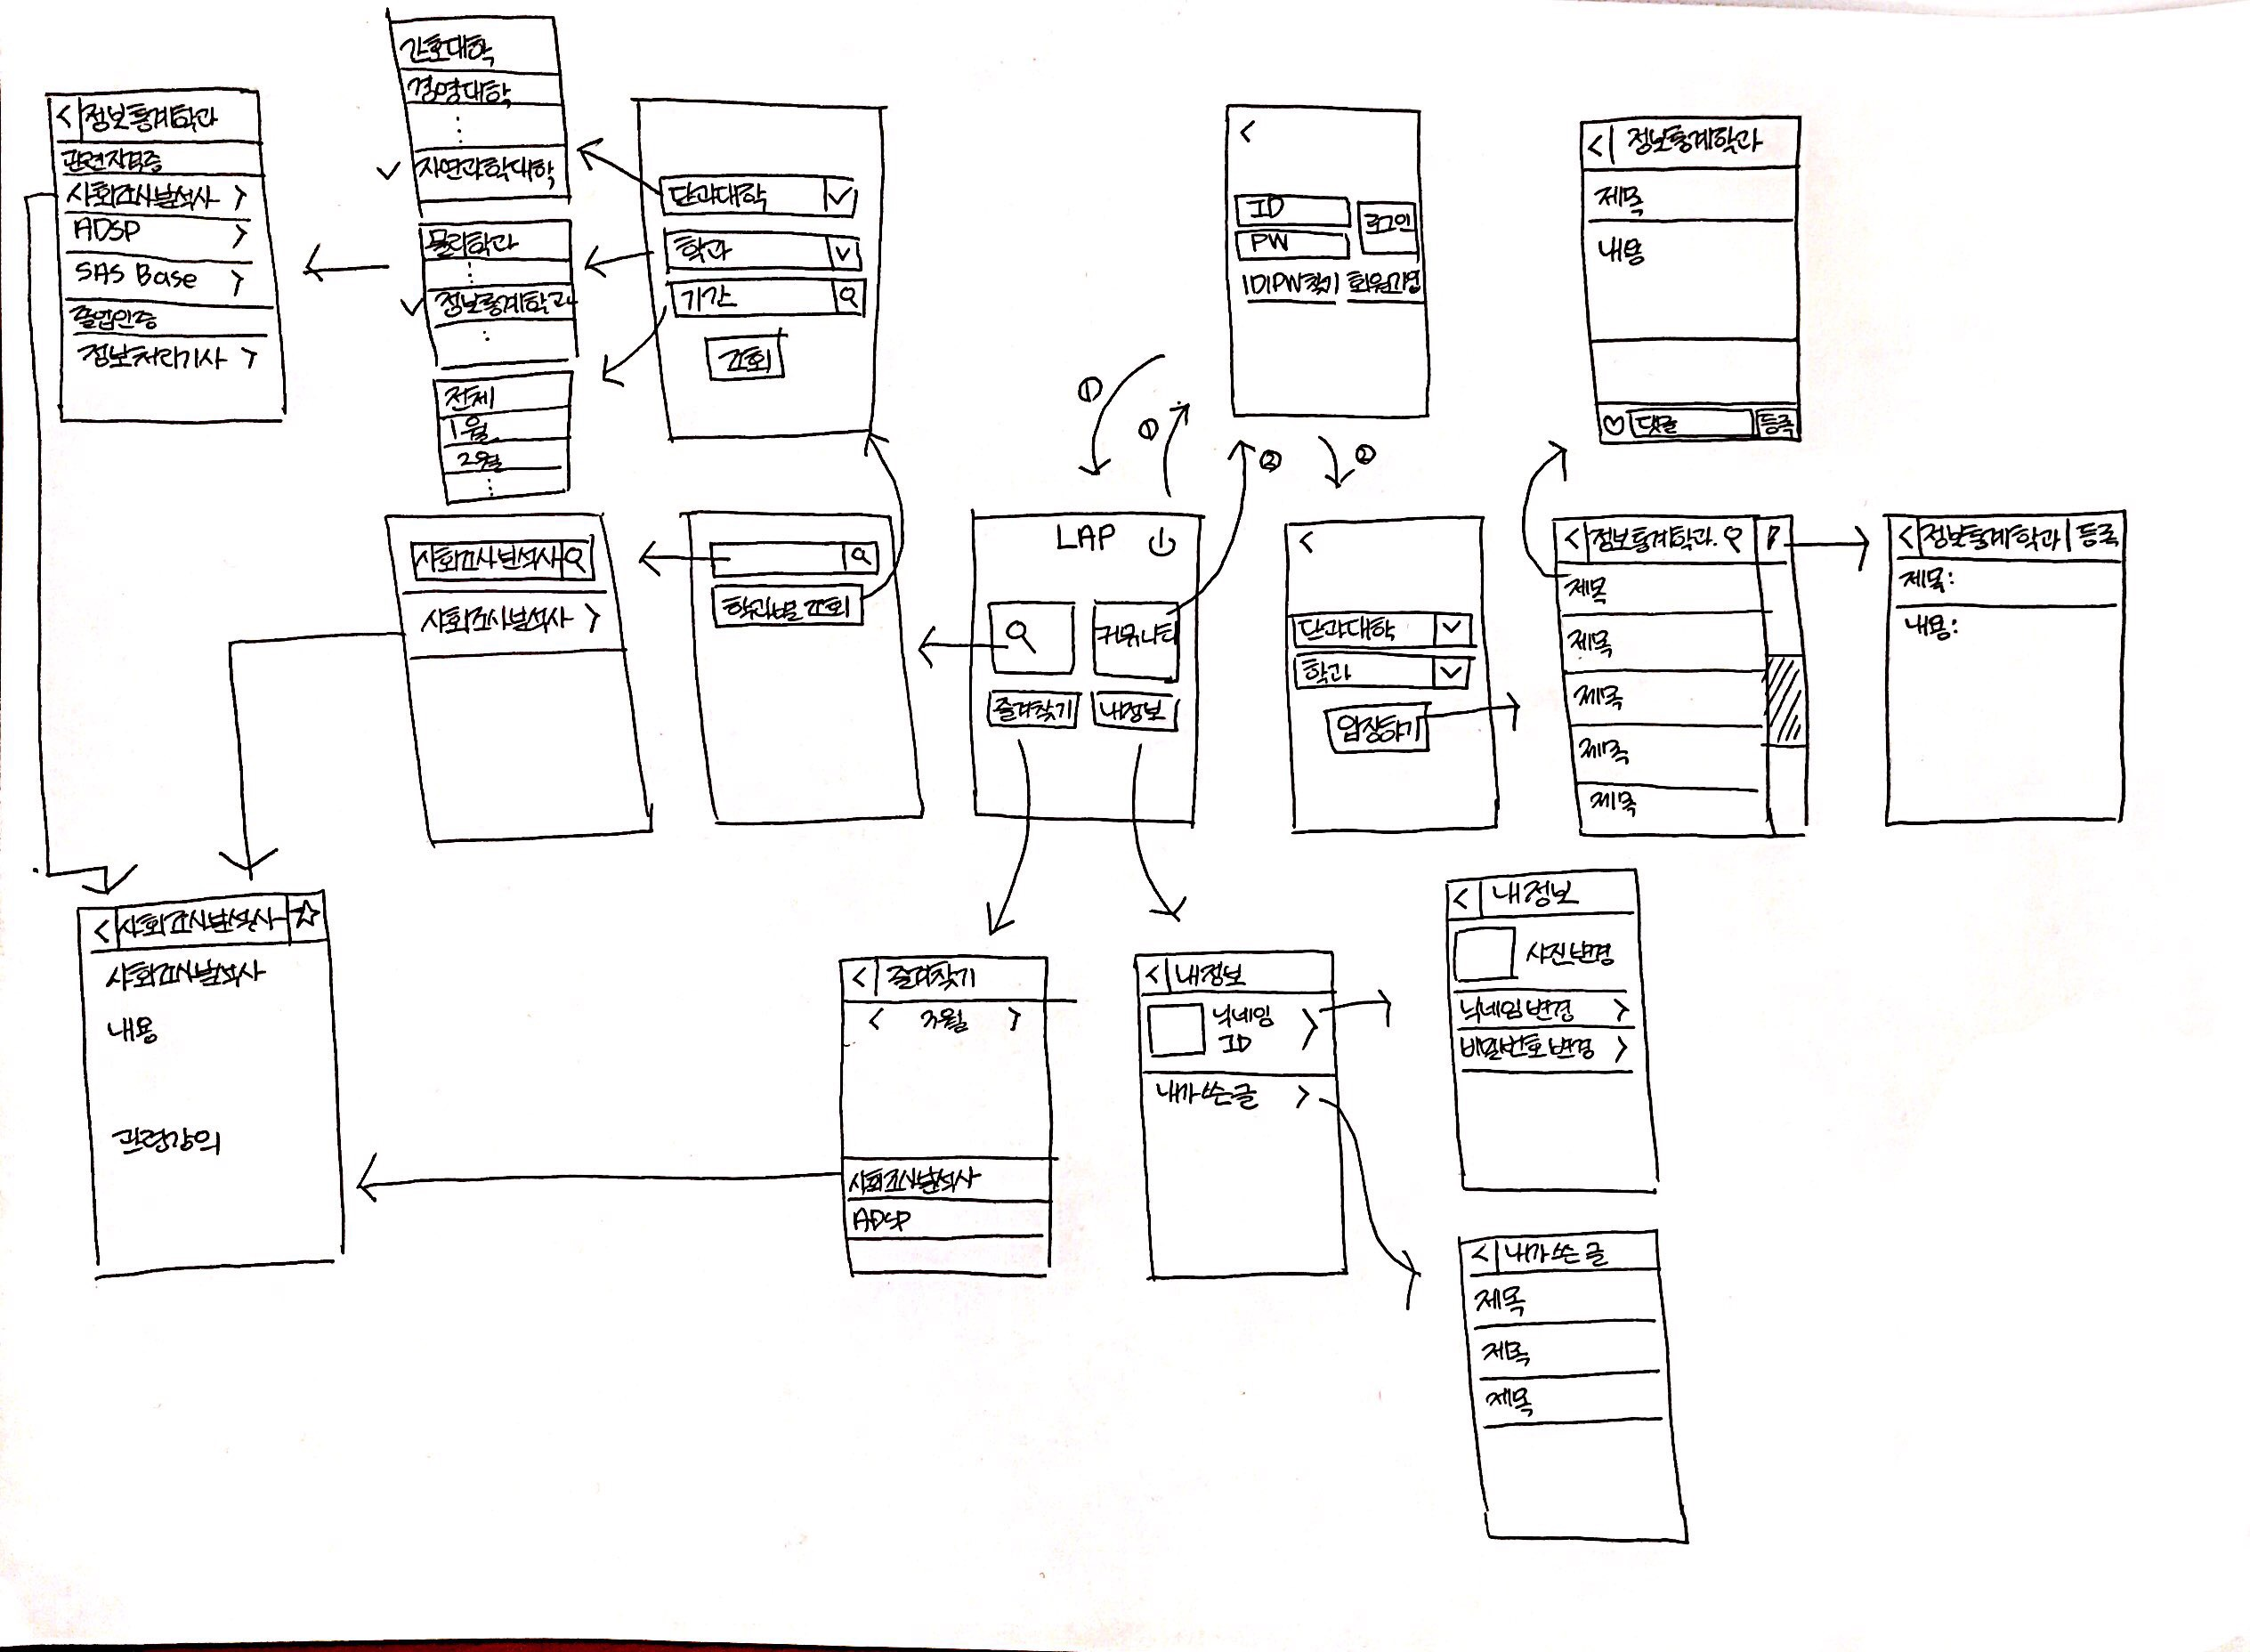 간호대학
경영대학
자연과학대학
< 정보통계학과
관련자격증
사회조사분석사 >
ADSP >
SAS Base >
졸업인증
정보처리기사 >
물리학과
정보통계학과
전체
1월
2월
단과대학
학과
기간
조회
<
ID
PW
로그인
ID/PW찾기 회원가입
< 정보통계학과
제목
내용
댓글 등록
①
①
②
②
사회조사분석사
사회조사분석사 >
학과별 조회
LAP
커뮤니티
즐겨찾기
내정보
<
단과대학
학과
입장하기
< 정보통계학과
제목
제목
제목
제목
제목
< 정보통계학과 등록
제목:
내용:
< 사회조사분석사 ☆
사회조사분석사
내용
관련강의
< 즐겨찾기
< 3월 >
사회조사분석사
ADSP
< 내정보
닉네임 >
ID
내가 쓴 글 >
< 내정보
사진변경
닉네임 변경 >
비밀번호 변경 >
< 내가 쓴 글
제목
제목
제목